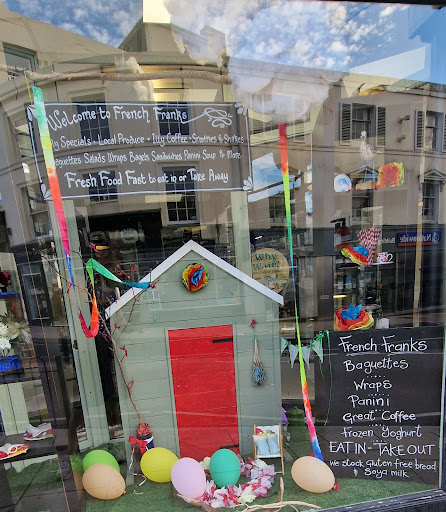 Welcome to French Franks
Daily Specials - Local Produce - Illy Coffee - Smoothies & Shakes
Baguettes Salads Wraps Bagels Sandwiches Panini Soup & More
Fresh Food Fast to eat in or Take Away
Why
Wait?
Nationwide
French Franks
Baguettes
Wraps
Panini
Great Coffee
Frozen Yoghurt
EAT IN - TAKE OUT
We stock Gluten free bread
& Soya milk